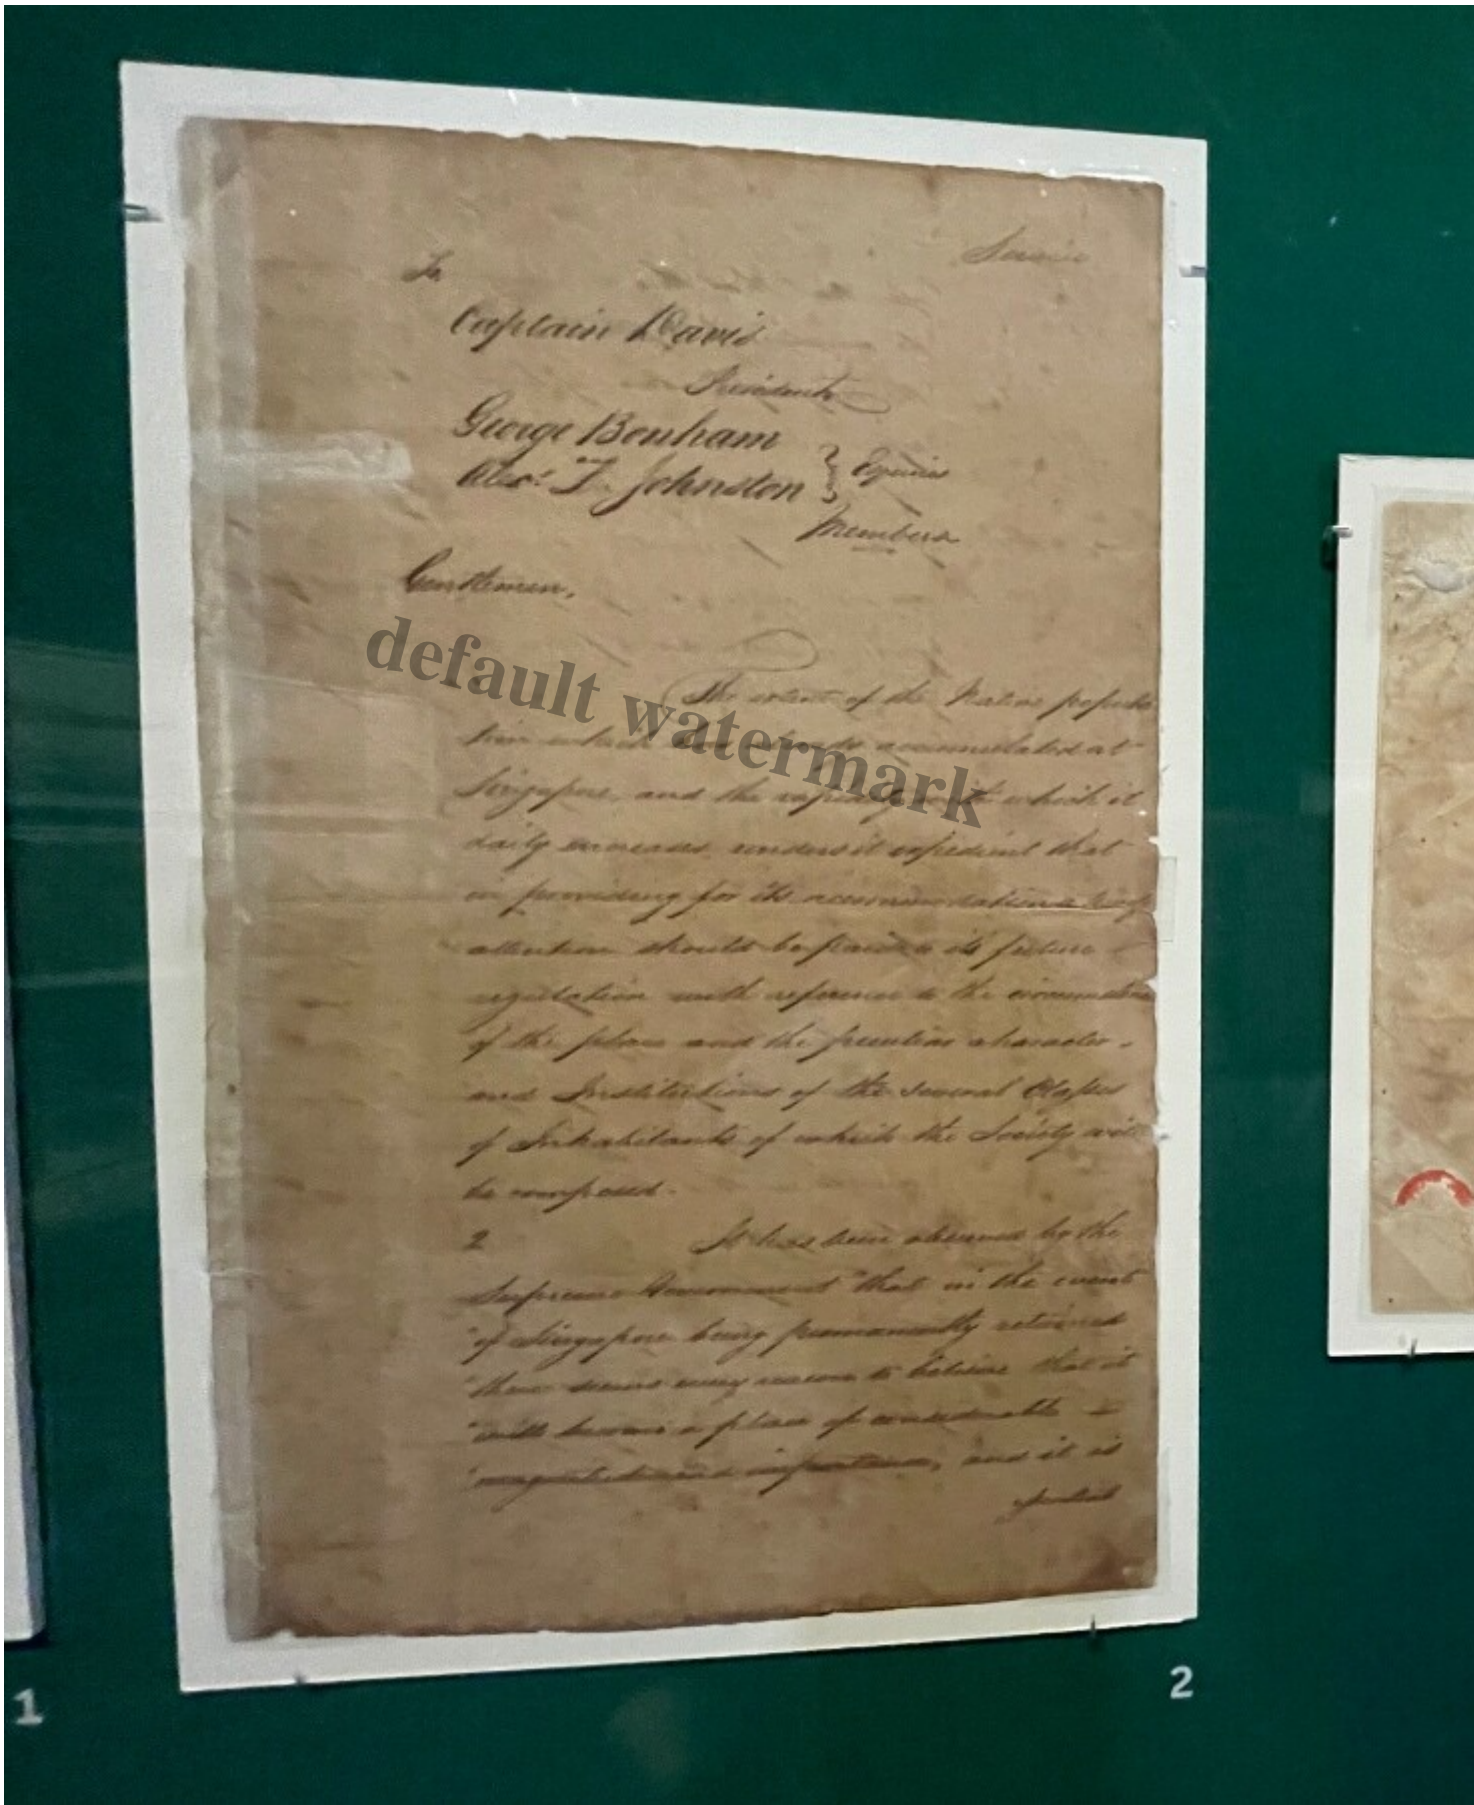 To
Captain Davis
President
George Bonham
and
Alexr. L. Johnston } Esquires
Members
Gentlemen,
default watermark
The extent of the Native popula
tion which accumulated at
Singapore, and the rapidity with which it
daily increases renders it expedient that
in providing for its accommodation a
attention should be paid to its future
regulation with reference to the circumstances
of the place and the peculiar character
and Institutions of the several Classes
of Inhabitants of which the Society will
be composed.
2 It has been observed by the
Supreme Government "that in the event
"of Singapore being permanently retained
"there seems every reason to believe that it
"will become a place of considerable
"magnitude and importance, and it is
1
2